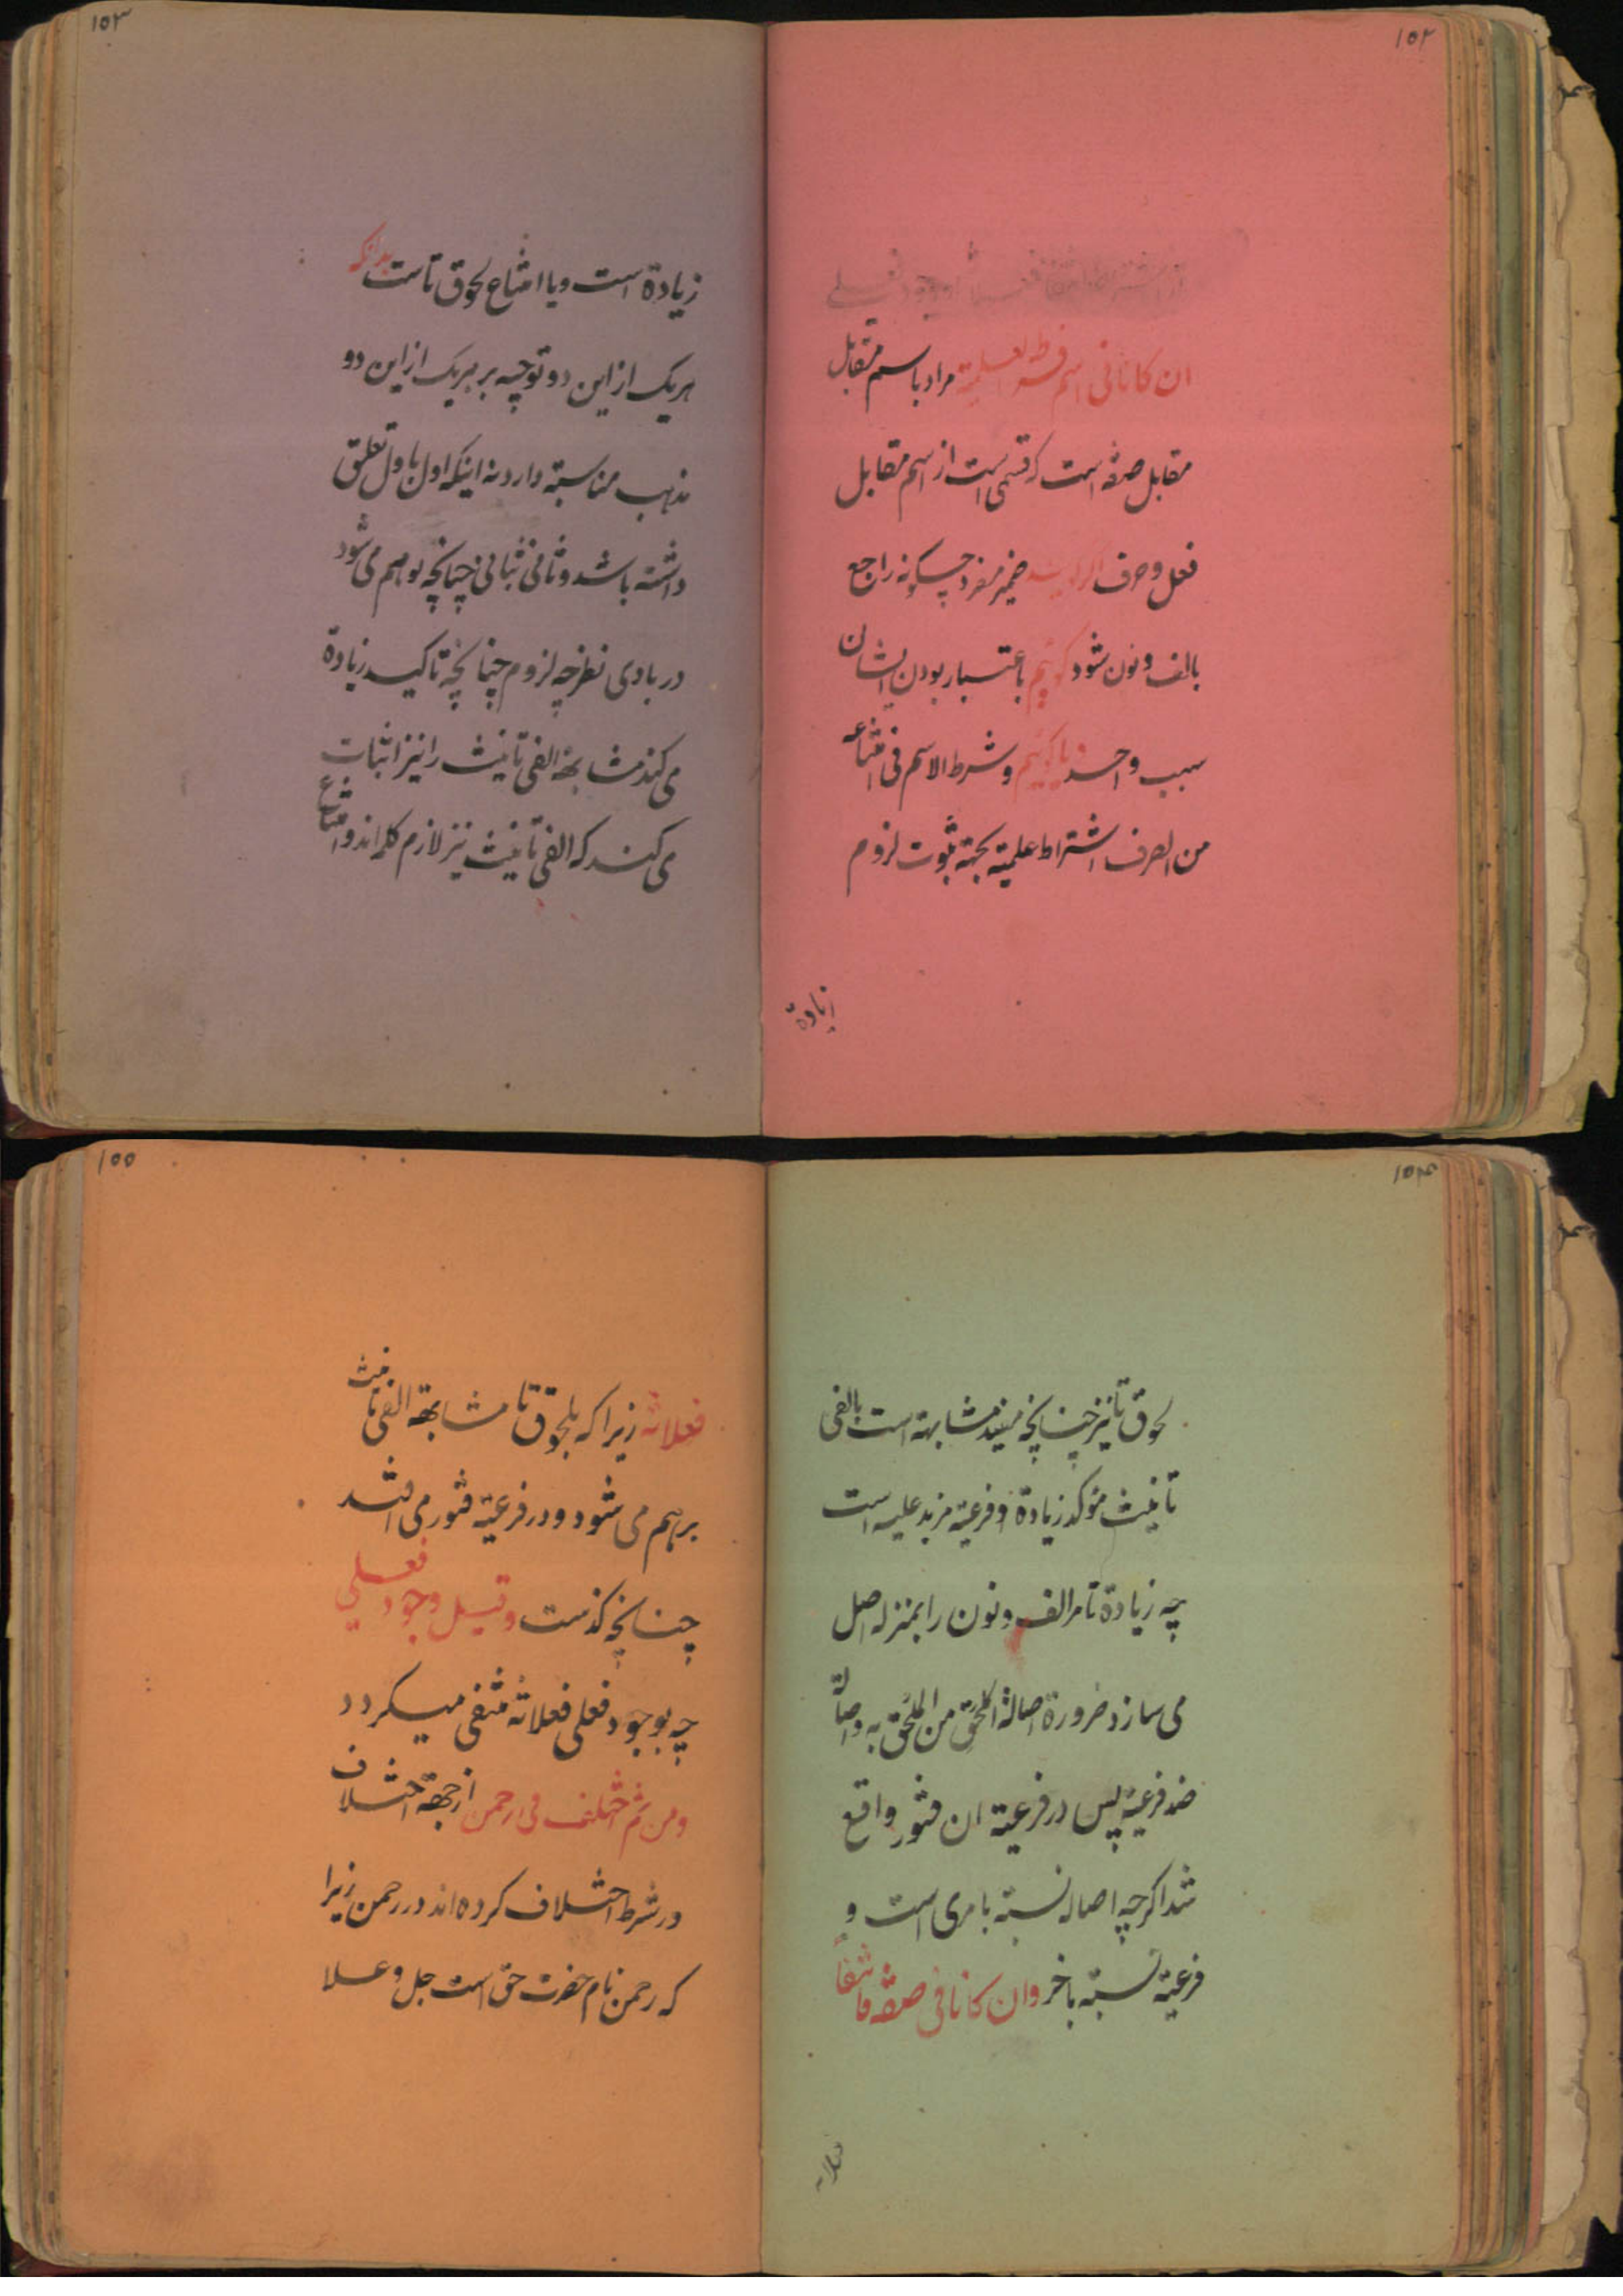 ۱۵۲
ان کانا فی اسم فشرطه العلمیة مراد باسم مقابل
مقابل صفة است که قسمی است از اسم مقابل
فعل و حرف اگر گویند ضمیر مفرد چگونه راجع
بالف و نون شود گوئیم باعتبار بودن ایشان
سبب واحد و یا گوئیم و شرط الاسم فی امتناعه
من الصرف اشتراط علمیة بجهة ثبوت لزوم
زیادة
۱۵۳
زیادة است و یا امتناع لحوق تاست بدانکه
هریک از این دو توجیه بر هریک از این دو
مذهب مناسبة دارد نه اینکه اول باول تعلق
داشته باشد و ثانی بثانی چنانچه توهم می شود
در بادی نظر چه لزوم چنانچه تاکید زیادة
می کند مشابهة الفی تانیث را نیز اثبات
می کند که الفی تانیث نیز لازم کلمه اند و امتناع
۱۵۴
لحوق تا نیز چنانچه مفید مشابهة است بالفی
تانیث مؤکد زیادة و فرعیة مزید علیه است
چه زیادة تا مر الف و نون را بمنزله اصل
می سازد ضرورة اصالة الملحق من الملحق به و اصالة
ضد فرعیة پس در فرعیة ان فتور واقع
شد اگرچه اصاله نسبة بامری است و
فرعیة نسبة باخر وان کانا فی صفة فانتفاء
فعلانة
۱۵۵
فعلانة زیرا که بلحوق تا مشابهة الفی تانیث
برهم می شود و در فرعیة فتور می افتد
چنانچه گذست وقیل وجود فعلی
چه بوجود فعلی فعلانة منتفی میگردد
ومن ثم اختلف فی رحمن از جهة اختلاف
در شرط اختلاف کرده اند در رحمن زیرا
که رحمن نام حضرت حق است جل و علا